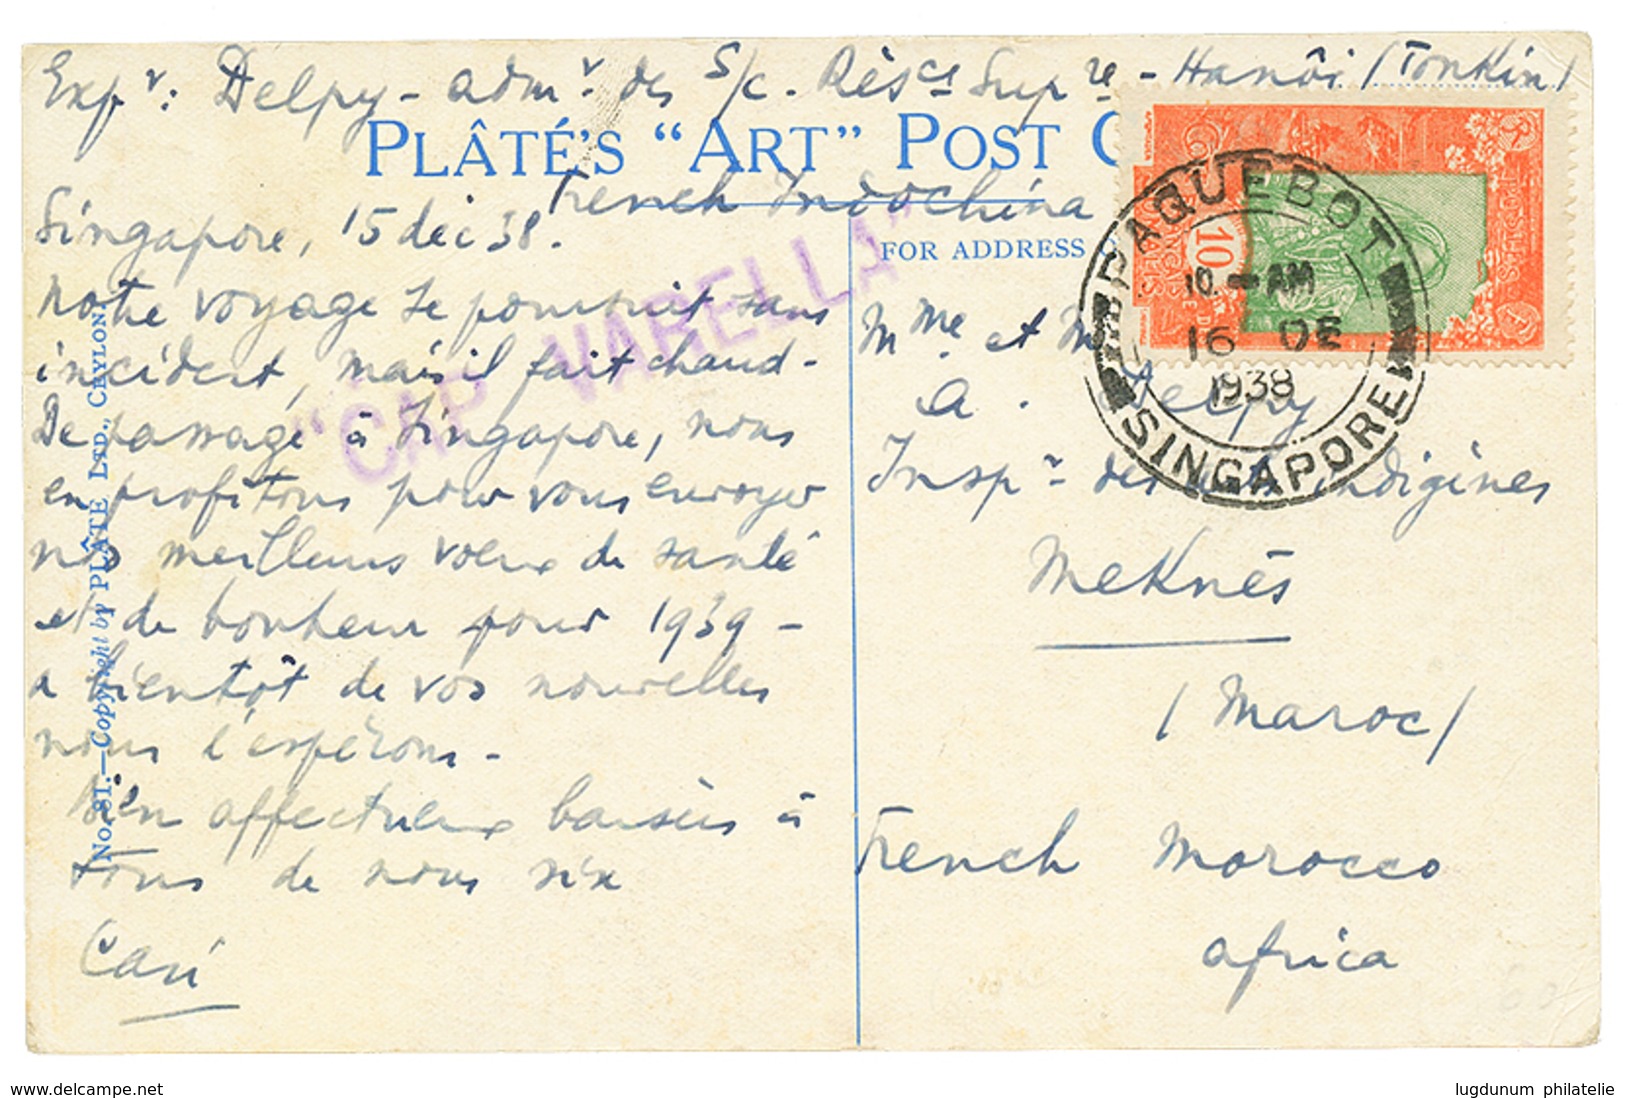 Expr: Delpy - admr. des S/c. Résce Supre - Hanôi (Tonkin)
PLÂTÉ'S "ART" POST C
French Indochina
Singapore, 15 déc 38.
Notre voyage se poursuit sans
incident, mais il fait chaud -
De passage à Singapore, nous
en profitons pour vous envoyer
nos meilleurs voeux de santé
et de bonheur pour 1939 -
a bientôt de vos nouvelles
nous l'espérons -
Bien affectueux baisers à
tous de nous six
"CAP VARELLA"
NO. 81.—Copyright by PLÂTÉ LTD., CEYLON.
FOR ADDRESS
Mme et M
A. Delpy
Inspr des indigènes
Meknès
(Maroc)
French Morocco
Africa
PAQUEBOT
10 - AM
16 DE
1938
SINGAPORE
10
delcampe.net
lugdunum philatelie